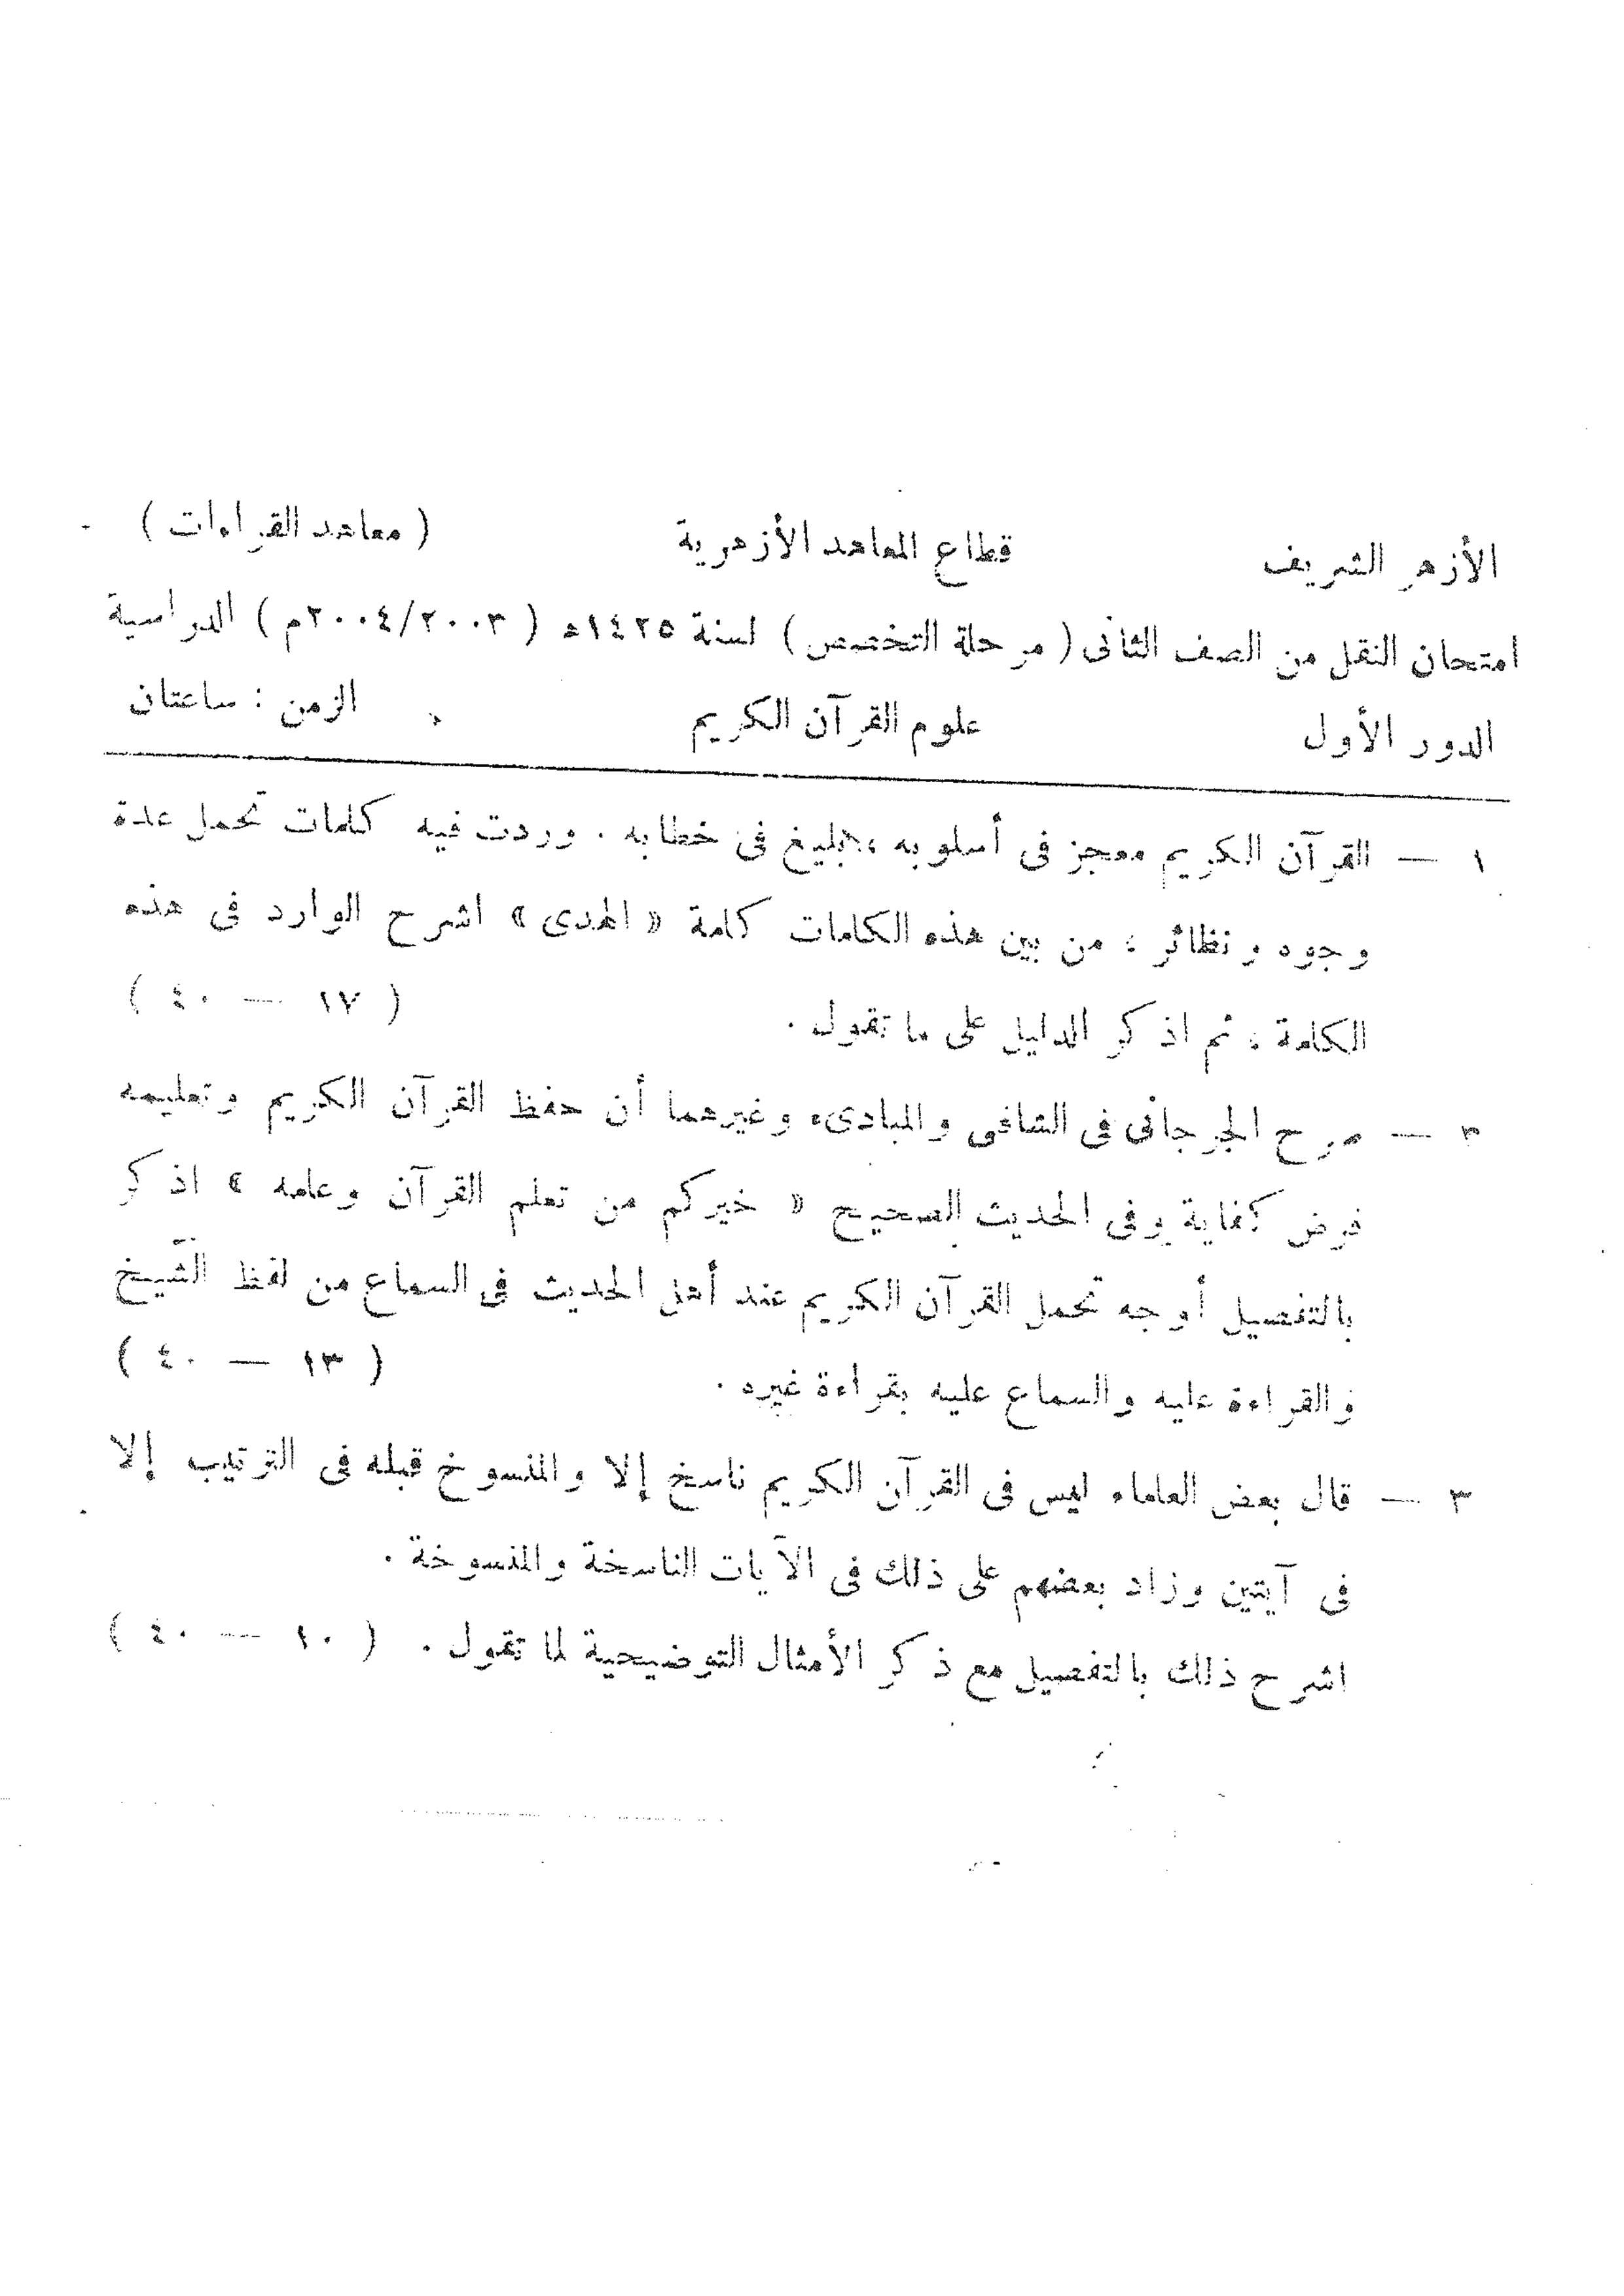 الأزهر الشريف قطاع المعاهد الأزهرية ( معاهد القراءات )
امتحان النقل من الصف الثانى ( مرحلة التخصص ) لسنة ١٤٢٥هـ ( ٢٠٠٤/٢٠٠٣م ) الدراسية
الدور الأول علوم القرآن الكريم الزمن : ساعتان
١ — القرآن الكريم معجز فى أسلوبه ، بليغ فى خطابه . وردت فيه كلمات تحمل عدة
وجوه ونظائر ، من بين هذه الكلمات كلمة « الهدى » اشرح الوارد فى هذه
الكلمة ، ثم اذكر الدليل على ما تقول . ( ١٧ — ٤٠ )
٢ — صرح الجرجانى فى الشافى والمبادىء وغيرهما أن حفظ القرآن الكريم وتعليمه
فرض كفاية وفى الحديث الصحيح « خيركم من تعلم القرآن وعلمه » اذكر
بالتفصيل أوجه تحمل القرآن الكريم عند أهل الحديث فى السماع من لفظ الشيخ
والقراءة عليه والسماع عليه بقراءة غيره . ( ١٣ — ٤٠ )
٣ — قال بعض العلماء ليس فى القرآن الكريم ناسخ إلا والمنسوخ قبله فى الترتيب إلا
فى آيتين وزاد بعضهم على ذلك فى الآيات الناسخة والمنسوخة .
اشرح ذلك بالتفصيل مع ذكر الأمثال التوضيحية لما تقول . ( ١٠ — ٤٠ )